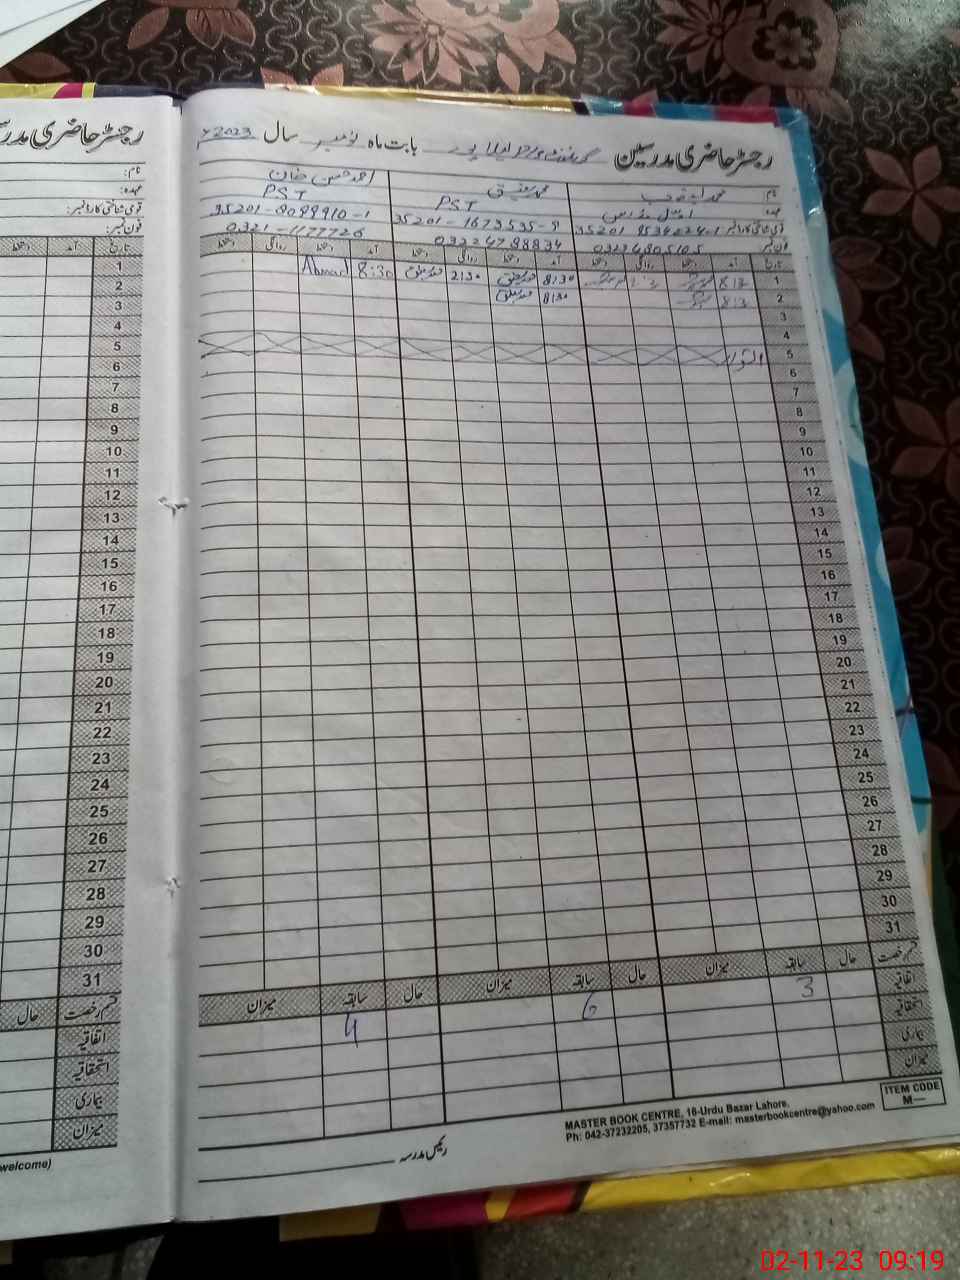 رجسٹر حاضری مدرسین گورنمنٹ بابت ماہ نومبر سال 2023ء
نام: محمد
محمد رفیق
احمد حسن خان
عہدہ
PST
PST
قومی شناختی کارڈ نمبر
35201-1673535-9
35201-8099910-1
فون نمبر 0323 4805105
0322 4788834
0321-1177726
تاریخ آمد دستخط روانگی دستخط آمد دستخط روانگی دستخط آمد دستخط روانگی دستخط
1 8:30 محمد رفیق 2:30 محمد رفیق 8:30 Ahmad
2 8:30 محمد رفیق
3
4
5 اتوار
6
7
8
9
10
11
12
13
14
15
16
17
18
19
20
21
22
23
24
25
26
27
28
29
30
31
قسم رخصت حال سابقہ میزان حال سابقہ میزان حال سابقہ میزان
اتفاقیہ 3 6 4
استحقاقیہ
بیماری
میزان
رئیس مدرسہ
MASTER BOOK CENTRE, 16-Urdu Bazar Lahore.
Ph: 042-37232205, 37357732 E-mail: masterbookcentre@yahoo.com
ITEM CODE
M—
رجسٹر حاضری
نام:
عہدہ:
قومی شناختی کارڈ نمبر:
فون نمبر:
تاریخ آمد دستخط
1
2
3
4
5
6
7
8
9
10
11
12
13
14
15
16
17
18
19
20
21
22
23
24
25
26
27
28
29
30
31
قسم رخصت حال
اتفاقیہ
استحقاقیہ
بیماری
میزان
welcome)
02-11-23 09:19